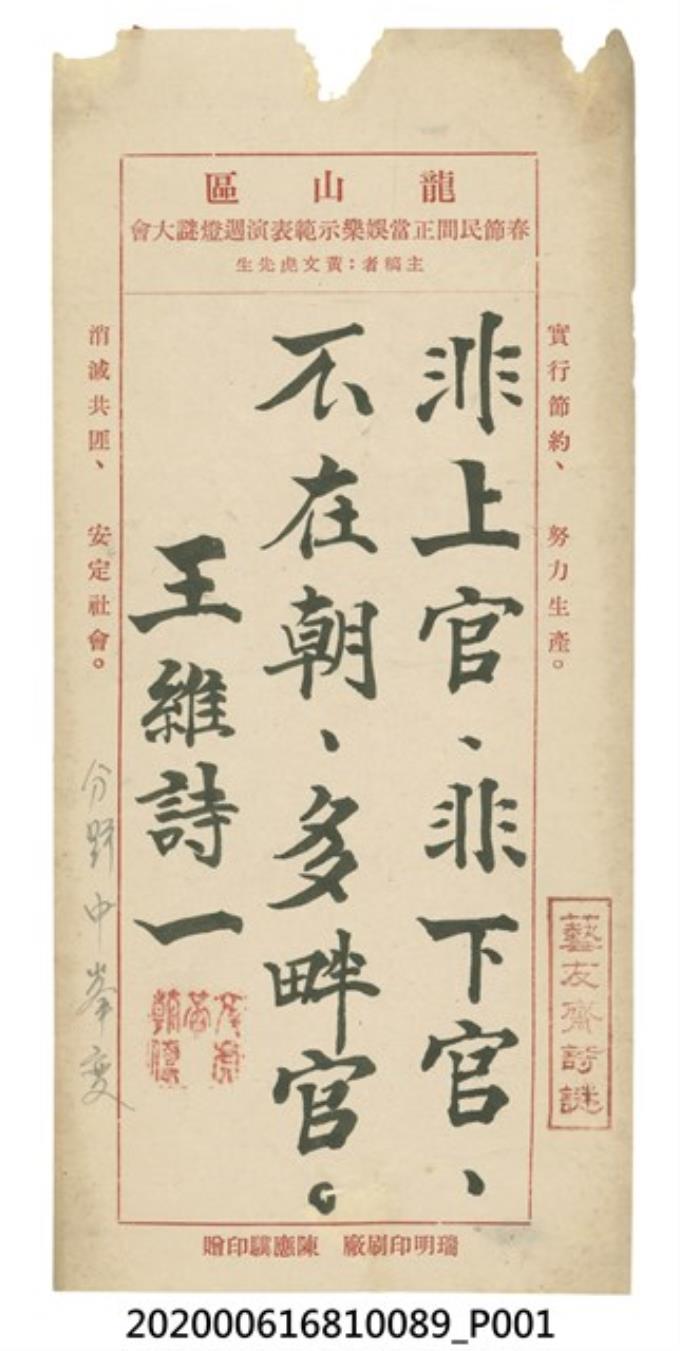 龍山區
春節民間正當娛樂示範表演週燈謎大會
主稿者：黃文虎先生
實行節約、努力生產。
藝友齋詩謎
非上官、非下官、
不在朝、多畔官。
王維詩一
消滅共匪、安定社會。
分野中峯變
瑞明印刷廠 陳應驥印贈
202000616810089_P001